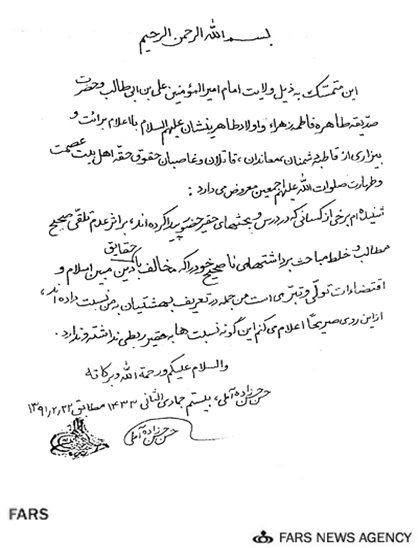 بسم الله الرحمن الرحیم
این متمسک به ذیل ولایت امام امیرالمؤمنین علی بن ابی طالب و حضرت
صدیقه طاهره فاطمه زهراء و اولاد طاهرینشان علیهم السلام با اعلام برائت و
بیزاری از قاطبه دشمنان، معاندان، قاتلان و غاصبان حقوق حقه اهل بیت عصمت
و طهارت صلوات الله علیهم اجمعین معروض می دارد:
شنیده ام برخی از کسانی که در درس و بحثهای حقیر حضور پیدا کرده اند، بر اثر عدم تلقی صحیح
مطالب و خلط مباحث برداشتهای ناصحیح خود را که مخالف با حقایق دین مبین اسلام و
اقتضاءات تولّی و تبرّی است من جمله در تعریف بهشتیان به من نسبت داده اند،
از این روی صریحاً اعلام می کنم این گونه نسبت ها به حقیر ربطی نداشته و ندارد.
والسلام علیکم ورحمة الله وبرکاته
حسن حسن زاده آملی، بیستم جمادی الثانی ۱۴۳۳ مطابق ۱۳۹۱,۲,۲۲
حسن حسن زاده آملی
FARS
FARS NEWS AGENCY